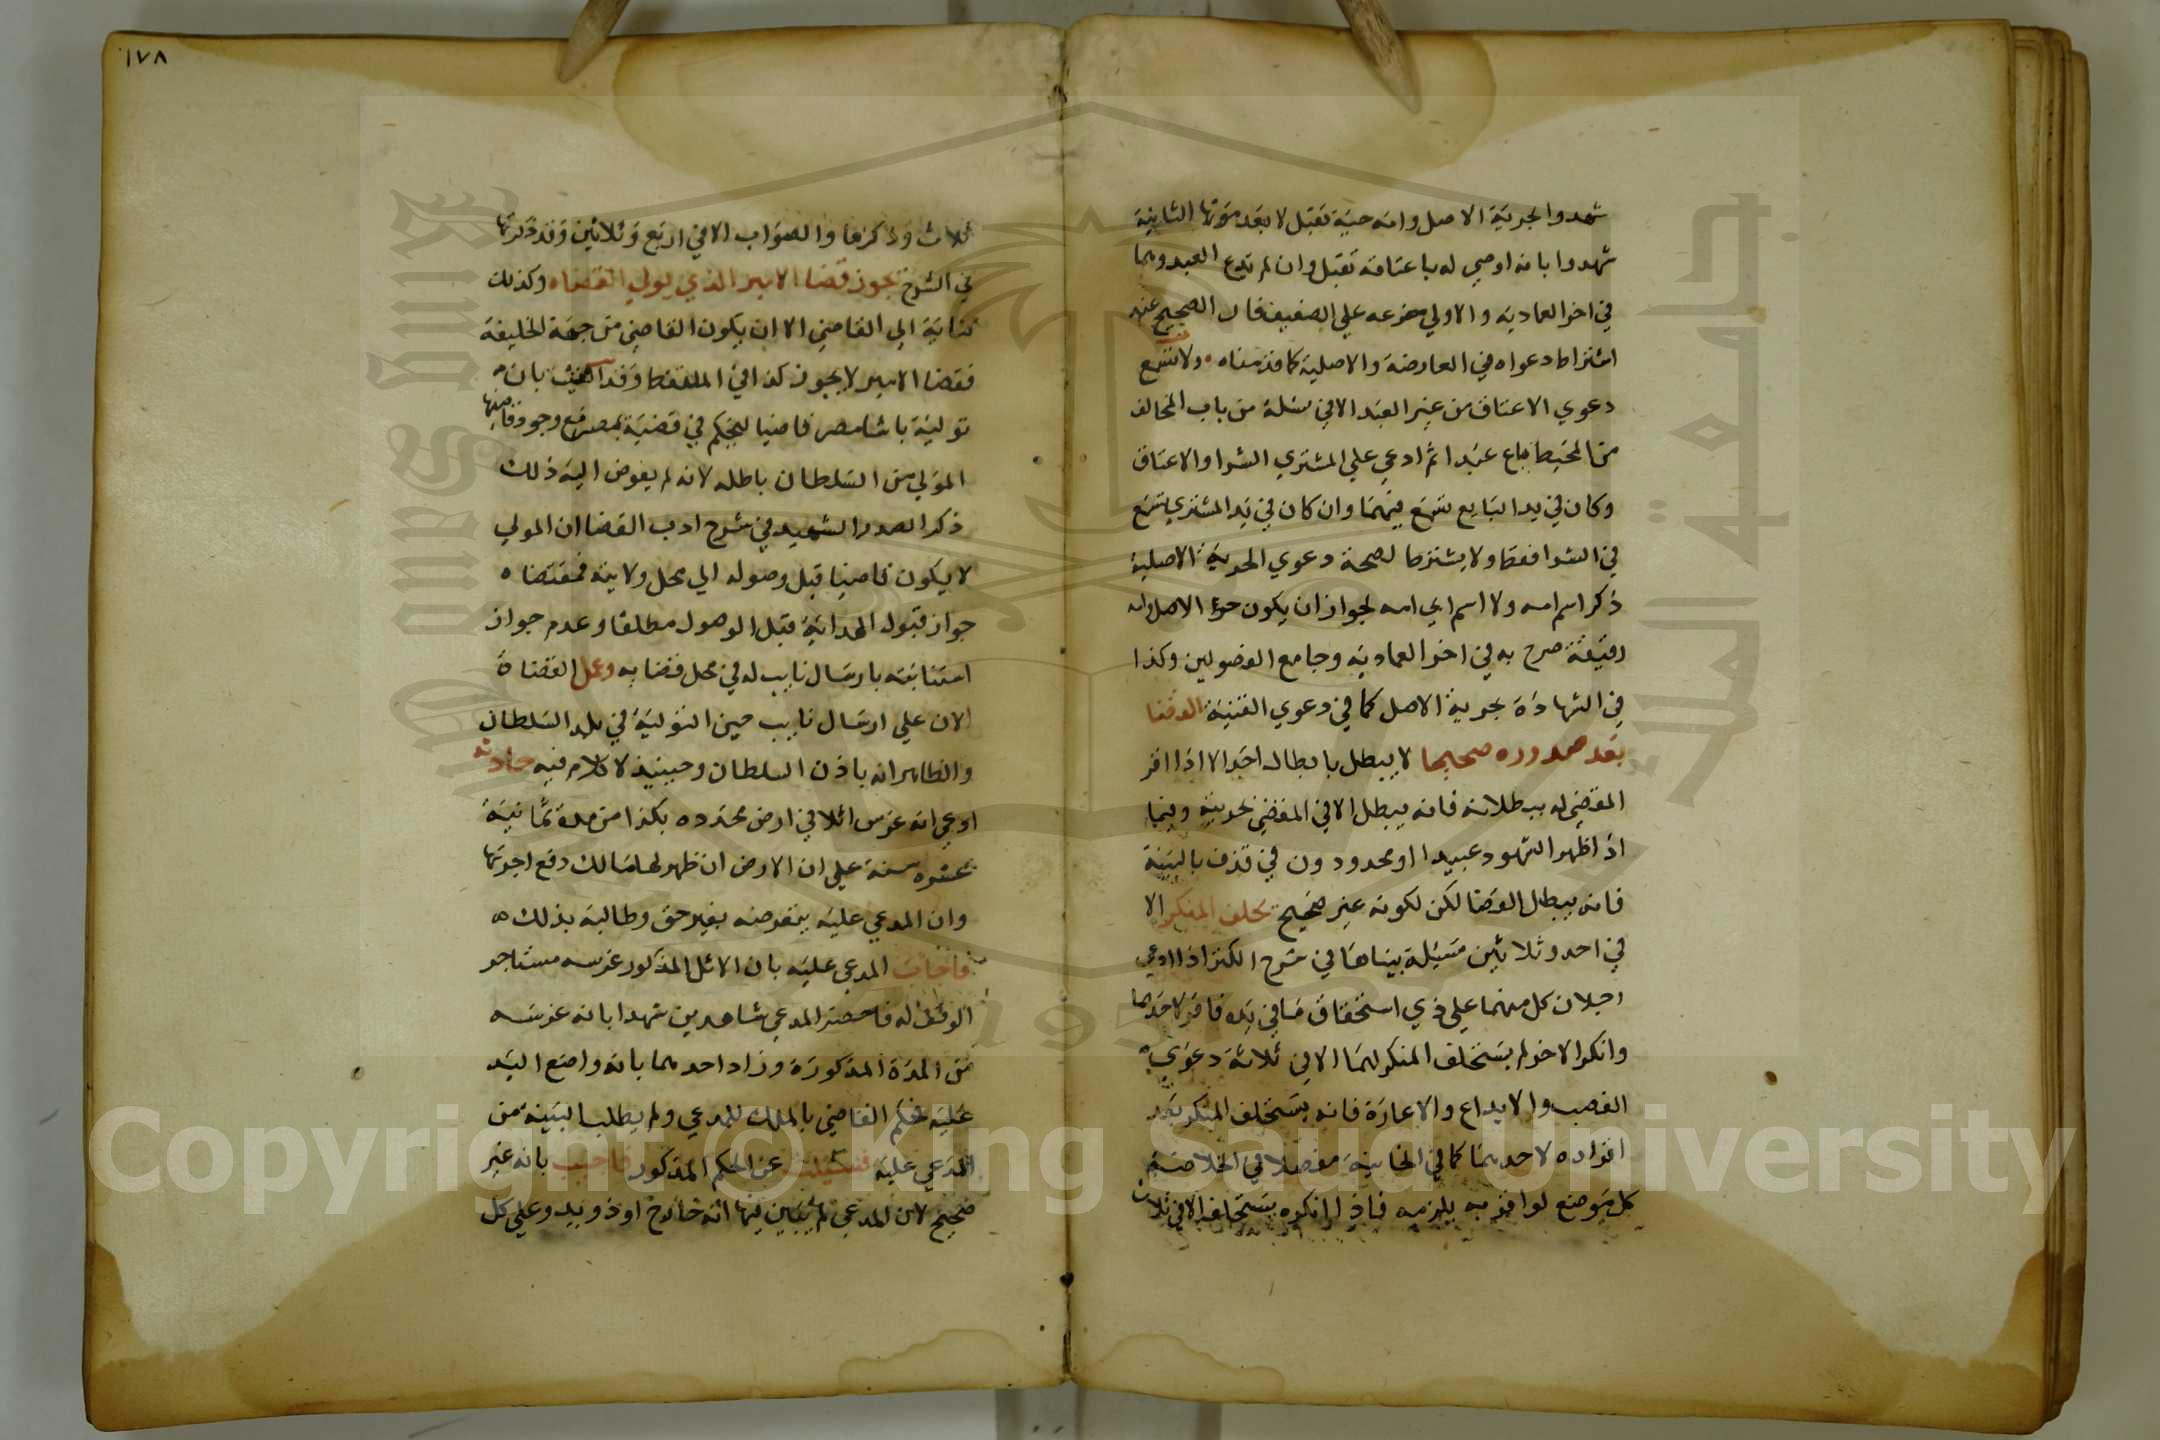 شهدوا بحرية الاصل وامه حية تقبل لا بعد موتها الثانية
شهدوا بانه اوصي له باعتاقه تقبل وان لم يدع العبد وهما
في اخر العمادية والاولي مفرعه علي الضعيف فان الصحيح عنده
اشتراط دعواه في العارضة والاصلية كما قدمناه ولا تسمع
دعوي الاعتاق من غير العبد الا في مسئلة من باب التحالف
من المحيط باع عبدا ثم ادعي علي المشتري الشرا والاعتاق
وكان في يد البايع تسمع فيهما وان كان في يد المشتري تسمع
في الشرا فقط ولا يشترط لصحة دعوي الحرية الاصلية
ذكر اسم امه ولا اسم ابي امه لجواز ان يكون حر الاصل وامه
رقيقة صرح به في اخر العمادية وجامع الفصولين وكذا
في الشهادة بحرية الاصل كما في دعوي القنية القضا
بعد صدوره صحيحا لا يبطل بابطال احد الا اذا اقر
المقضي له ببطلانه فانه يبطل الا في المقضي بحريته وفيما
اذا ظهر الشهود عبيدا او محدودون في قذف بالبينة
فانه يبطل القضا لكن لكونه غير صحيح يحلف المنكر الا
في احد وثلاثين مسئلة بيناها في شرح الكنز اذا ادعي
رجلان كل منهما علي ذي استحقاق ما في يده فاقر لاحدهما
وانكر الاخر لم يستحلف المنكر لهما الا في ثلاثة دعوي
الغصب والايداع والاعارة فانه يستحلف المنكر بعد
اقراره لاحدهما كما في الخانية مفصلا في الخلاصة
كل موضع لو اقر به يلزمه فاذا انكره يستحلف الا في ثلاث
ثلاث وذكرها والصواب الا في اربع وثلاثين وقد ذكرتها
في الشرح يجوز قضا الامير الذي يولي القضاه وكذلك
كتابة الي القاضي الا ان يكون القاضي من جهة الخليفة
فقضا الامير لا يجوز كذا في الملتقط وقد افتيت بان
تولية باشا مصر قاضيا ليحكم في قضية بمصر مع وجود قاضيها
المولي من السلطان باطله لانه لم يفوض اليه ذلك
ذكر الصدر الشهيد في شرح ادب القضا ان المولي
لا يكون قاضيا قبل وصوله الي محل ولايته فمقتضاه
جواز قبول الهداية قبل الوصول مطلقا وعدم جواز
استنابته بارسال نايب له في محل قضايه وعمل القضاة
الان علي ارسال نايب حين التولية في بلد السلطان
والظاهر انه باذن السلطان وحينيذ لا كلام فيه حادثه
ادعي انه غرس اثلا في ارض محدده بكذا من مدة ثمانية
عشره سنة علي ان الارض ان ظهر لها مالك دفع اجرتها
وان المدعي عليه يتعرضه بغير حق وطالبه بذلك
فاجاب المدعي عليه بان الاثل المذكور غرسه مستاجر
الوقف له فاحضر المدعي شاهدين شهدا بانه غرسه
من المدة المذكورة وزاد احدهما بانه واضع اليد
عليه فحكم القاضي بالملك للمدعي ولم يطلب البينة من
المدعي عليه فسئلت عن الحكم المذكور فاجبت بانه غير
صحيح لان المدعي لم يتبين فيها انه خارج او ذو يد وعلي كل
١٧٨
Copyright © King Saud University
جامعة الملك سعود
King Saud University
1957